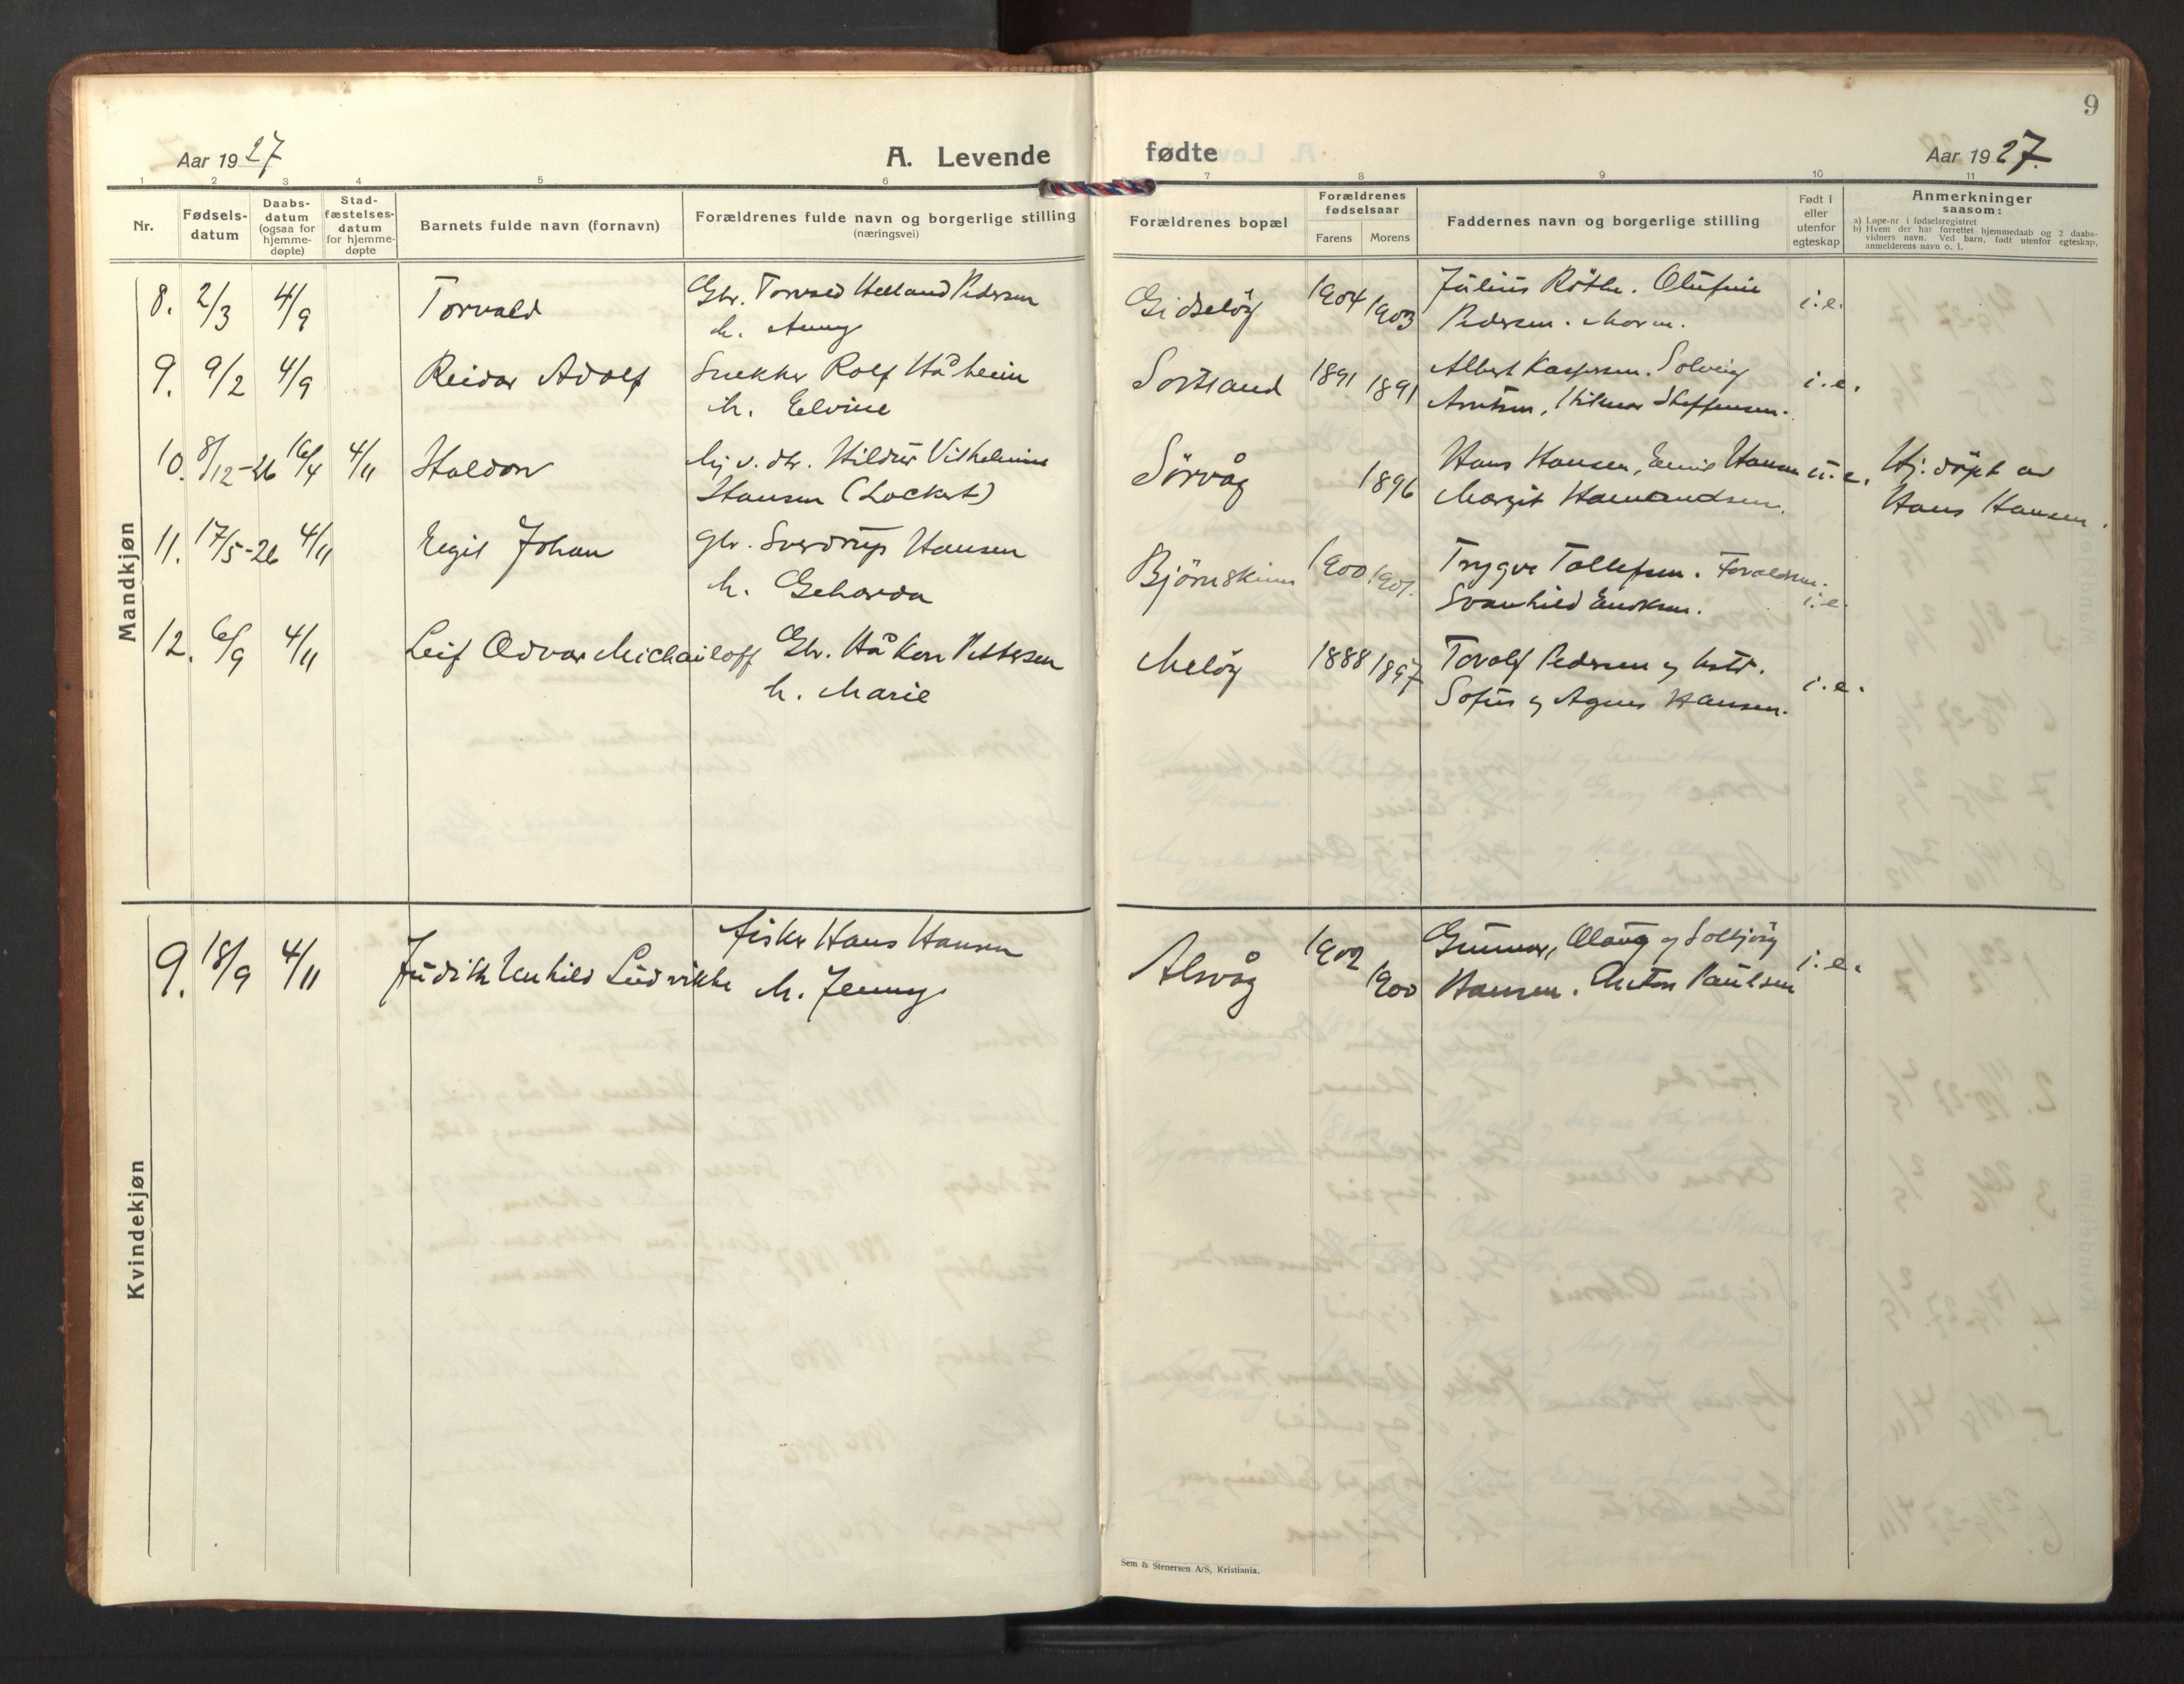 9
Aar 1927
A. Levende fødte
Aar 1927.
1 2 3 4 5 6 7 8 9 10 11
Nr.
Fødsels-
datum
Daabs-
datum
(ogsaa for
hjemme-
døpte)
Stad-
fæstelses-
datum
for hjemme-
døpte
Barnets fulde navn (fornavn)
Forældrenes fulde navn og borgerlige stilling
(næringsvei)
Forældrenes bopæl
Forældrenes
fødselsaar
Farens Morens
Faddernes navn og borgerlige stilling
Født i
eller
utenfor
egteskap
Anmerkninger
saasom:
a) Løpe-nr i fødselsregistret
b) Hvem der har forrettet hjemmedaab og 2 daabs-
vidners navn. Ved barn, født utenfor egteskap,
anmelderens navn o. l.
Mandkjøn
8. 2/3 4/9 Torvald Gbr. Torvald Helland Pedersen Gidsløy 1904 1903 Julius Röthe. Olufine i.e.
h. Anny Pedersen. Morm.
9. 9/2 4/9 Reidar Adolf Snekker Rolf Håheim Sortland 1891 1891 Albert Kaspersen. Solveig i.e.
h. Elvine Arntsen, Hilmar Steffensen.
10. 8/12-26 16/4 4/11 Haldor v. dtr. Hildur Vilhelmine Sørvåg 1896 Hans Hansen, Hansen u.e. Hj. døpt av
Hansen (Lockert) Margit Hans Hansen.
11. 17/5-26 4/11 Eigil Johan Gbr. Sverdrup Hansen Bjørnskinn 1900 1901. Trygve Tollefsen.
h. Geharda Svanhild i.e.
12. 6/9 4/11 Leif Odvar Michailoff Gbr. Håkon Pettersen Meløy 1888 1897 Torolf Pedersen og hstr. i.e.
h. Marie Sofus og Agnes Hansen.
Kvindekjøn
9. 18/9 4/11 Judith Unhild Ludvikke fisker Hans Hansen Alsvåg 1902 1900 Gunnar, Olaug og Solbjørg i.e.
h. Jenny Hansen. Anton Paulsen
Sem & Stenersen A/S, Kristiania.